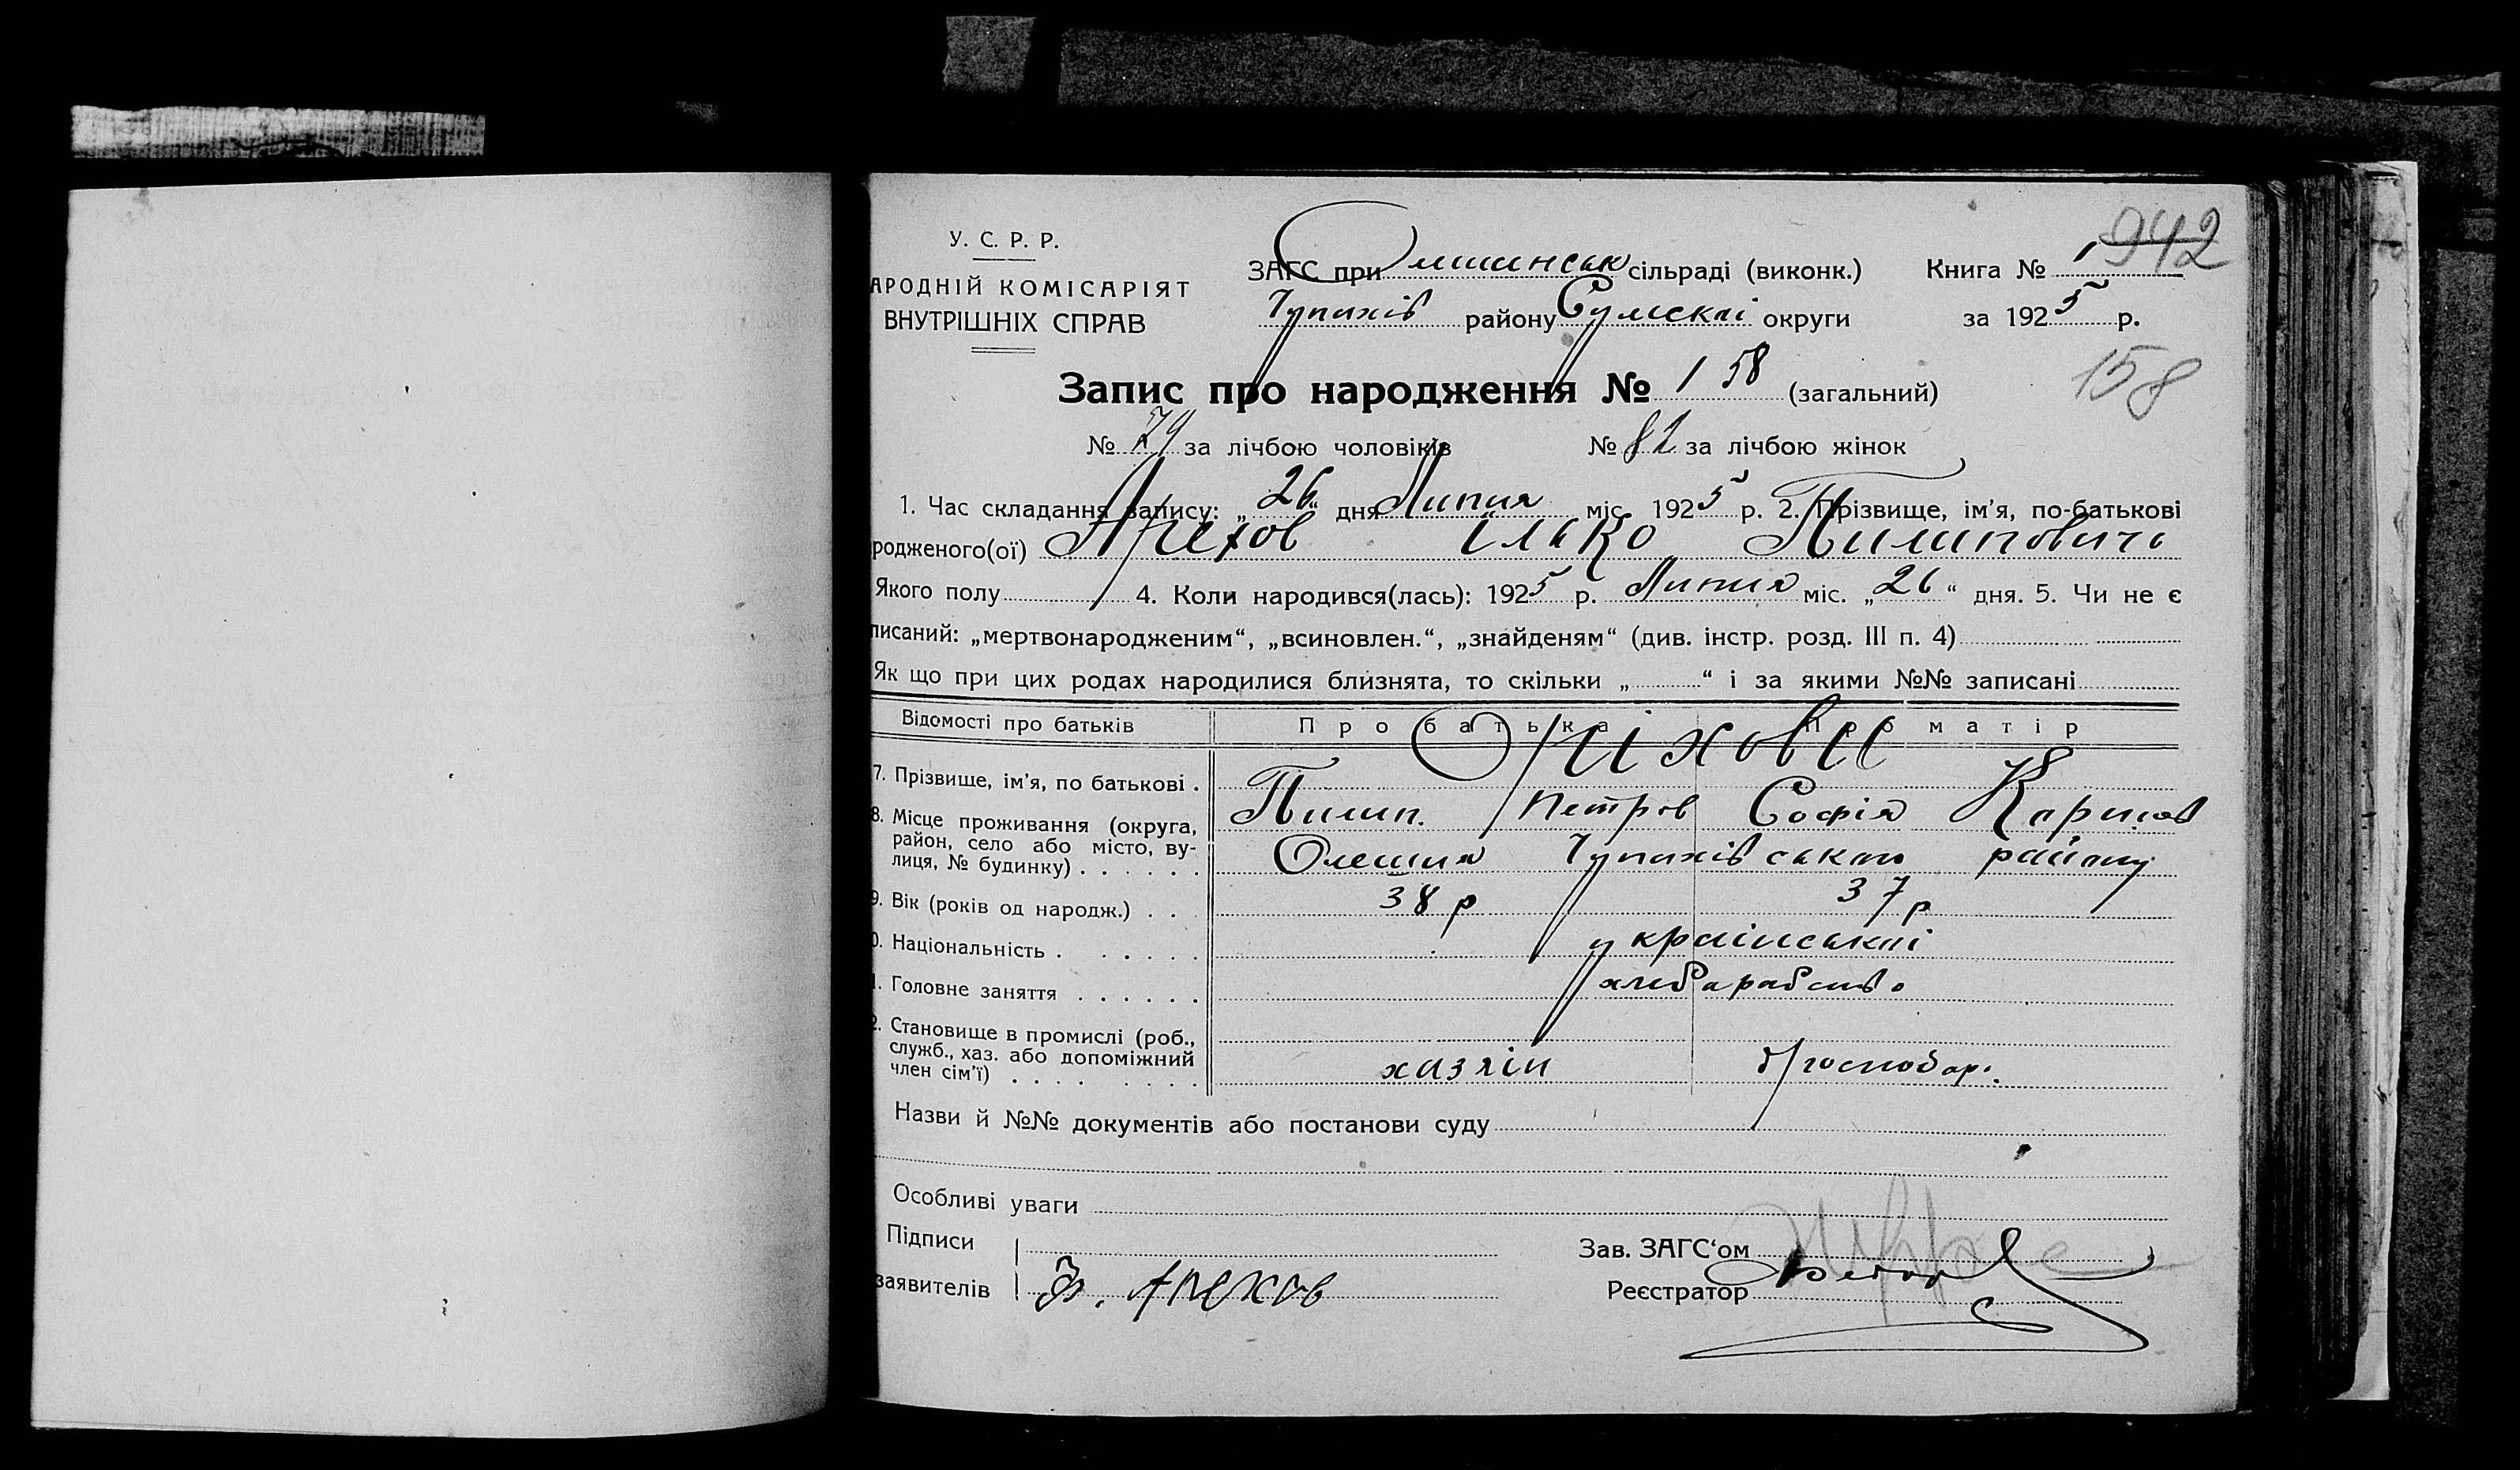 942
У. С. Р. Р.
АРОДНІЙ КОМІСАРІЯТ
ВНУТРІШНІХ СПРАВ
ЗАГС при сільраді (виконк.) Книга № 1
Чупахів району Сумскої округи за 1925 р.
Запис про народження № 158 (загальний)
158
№ 79 за лічбою чоловіків № 82 за лічбою жінок
1. Час складання запису: „ 26 “ дня Липня міс. 1925 р. 2. Прізвище, ім'я, по-батькові
родженого(ої) Арехов Ілько Пилипович
Якого полу 4. Коли народився(лась): 1925 р. Липня міс. „ 26 “ дня. 5. Чи не є
писаний: „мертвонародженим“, „всиновлен.“, „знайденям“ (див. інстр. розд. III п. 4)
Як що при цих родах народилися близнята, то скільки „ “ і за якими №№ записані
Відомості про батьків Про батька Про матір
7. Прізвище, ім'я, по батькові .
Пилип. Петров Софія
8. Місце проживання (округа,
район, село або місто, ву-
лиця, № будинку) . . . . . . Олешня Чупахівського району
9. Вік (років од народж.) . . . 38 р 37 р
0. Національність . . . . . . української
1. Головне заняття . . . . . .
2. Становище в промислі (роб.,
служб., хаз. або допоміжний
член сім'ї) . . . . . . . . хазяін д/господар.
Назви й №№ документів або постанови суду
Особливі уваги
Підписи
Зав. ЗАГС'ом
заявителів Арехов
Реєстратор